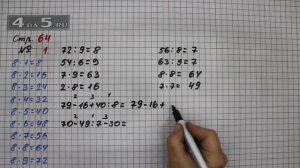 4.0A5.RU
Стр. 64
№ 1
8·1=8
8·2=16
8·3=24
8·4=32
8·5=40
8·6=48
8·7=56
8·8=64
8·9=72
72:9=8
54:6=9
7·9=63
2·8=16
56:8=7
63:9=7
8·8=64
7·7=49
2 3 1
79-16+40:8=79-16+
2 1 3
70-49:7-30=